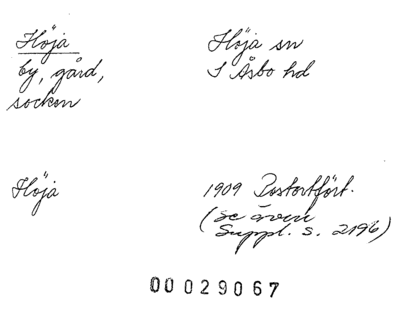 Höja
by, gård,
socken
Höja sn
S Åsbo hd
Höja
1909 Postortfört.
(se även
Suppl. s. 2196)
00029067